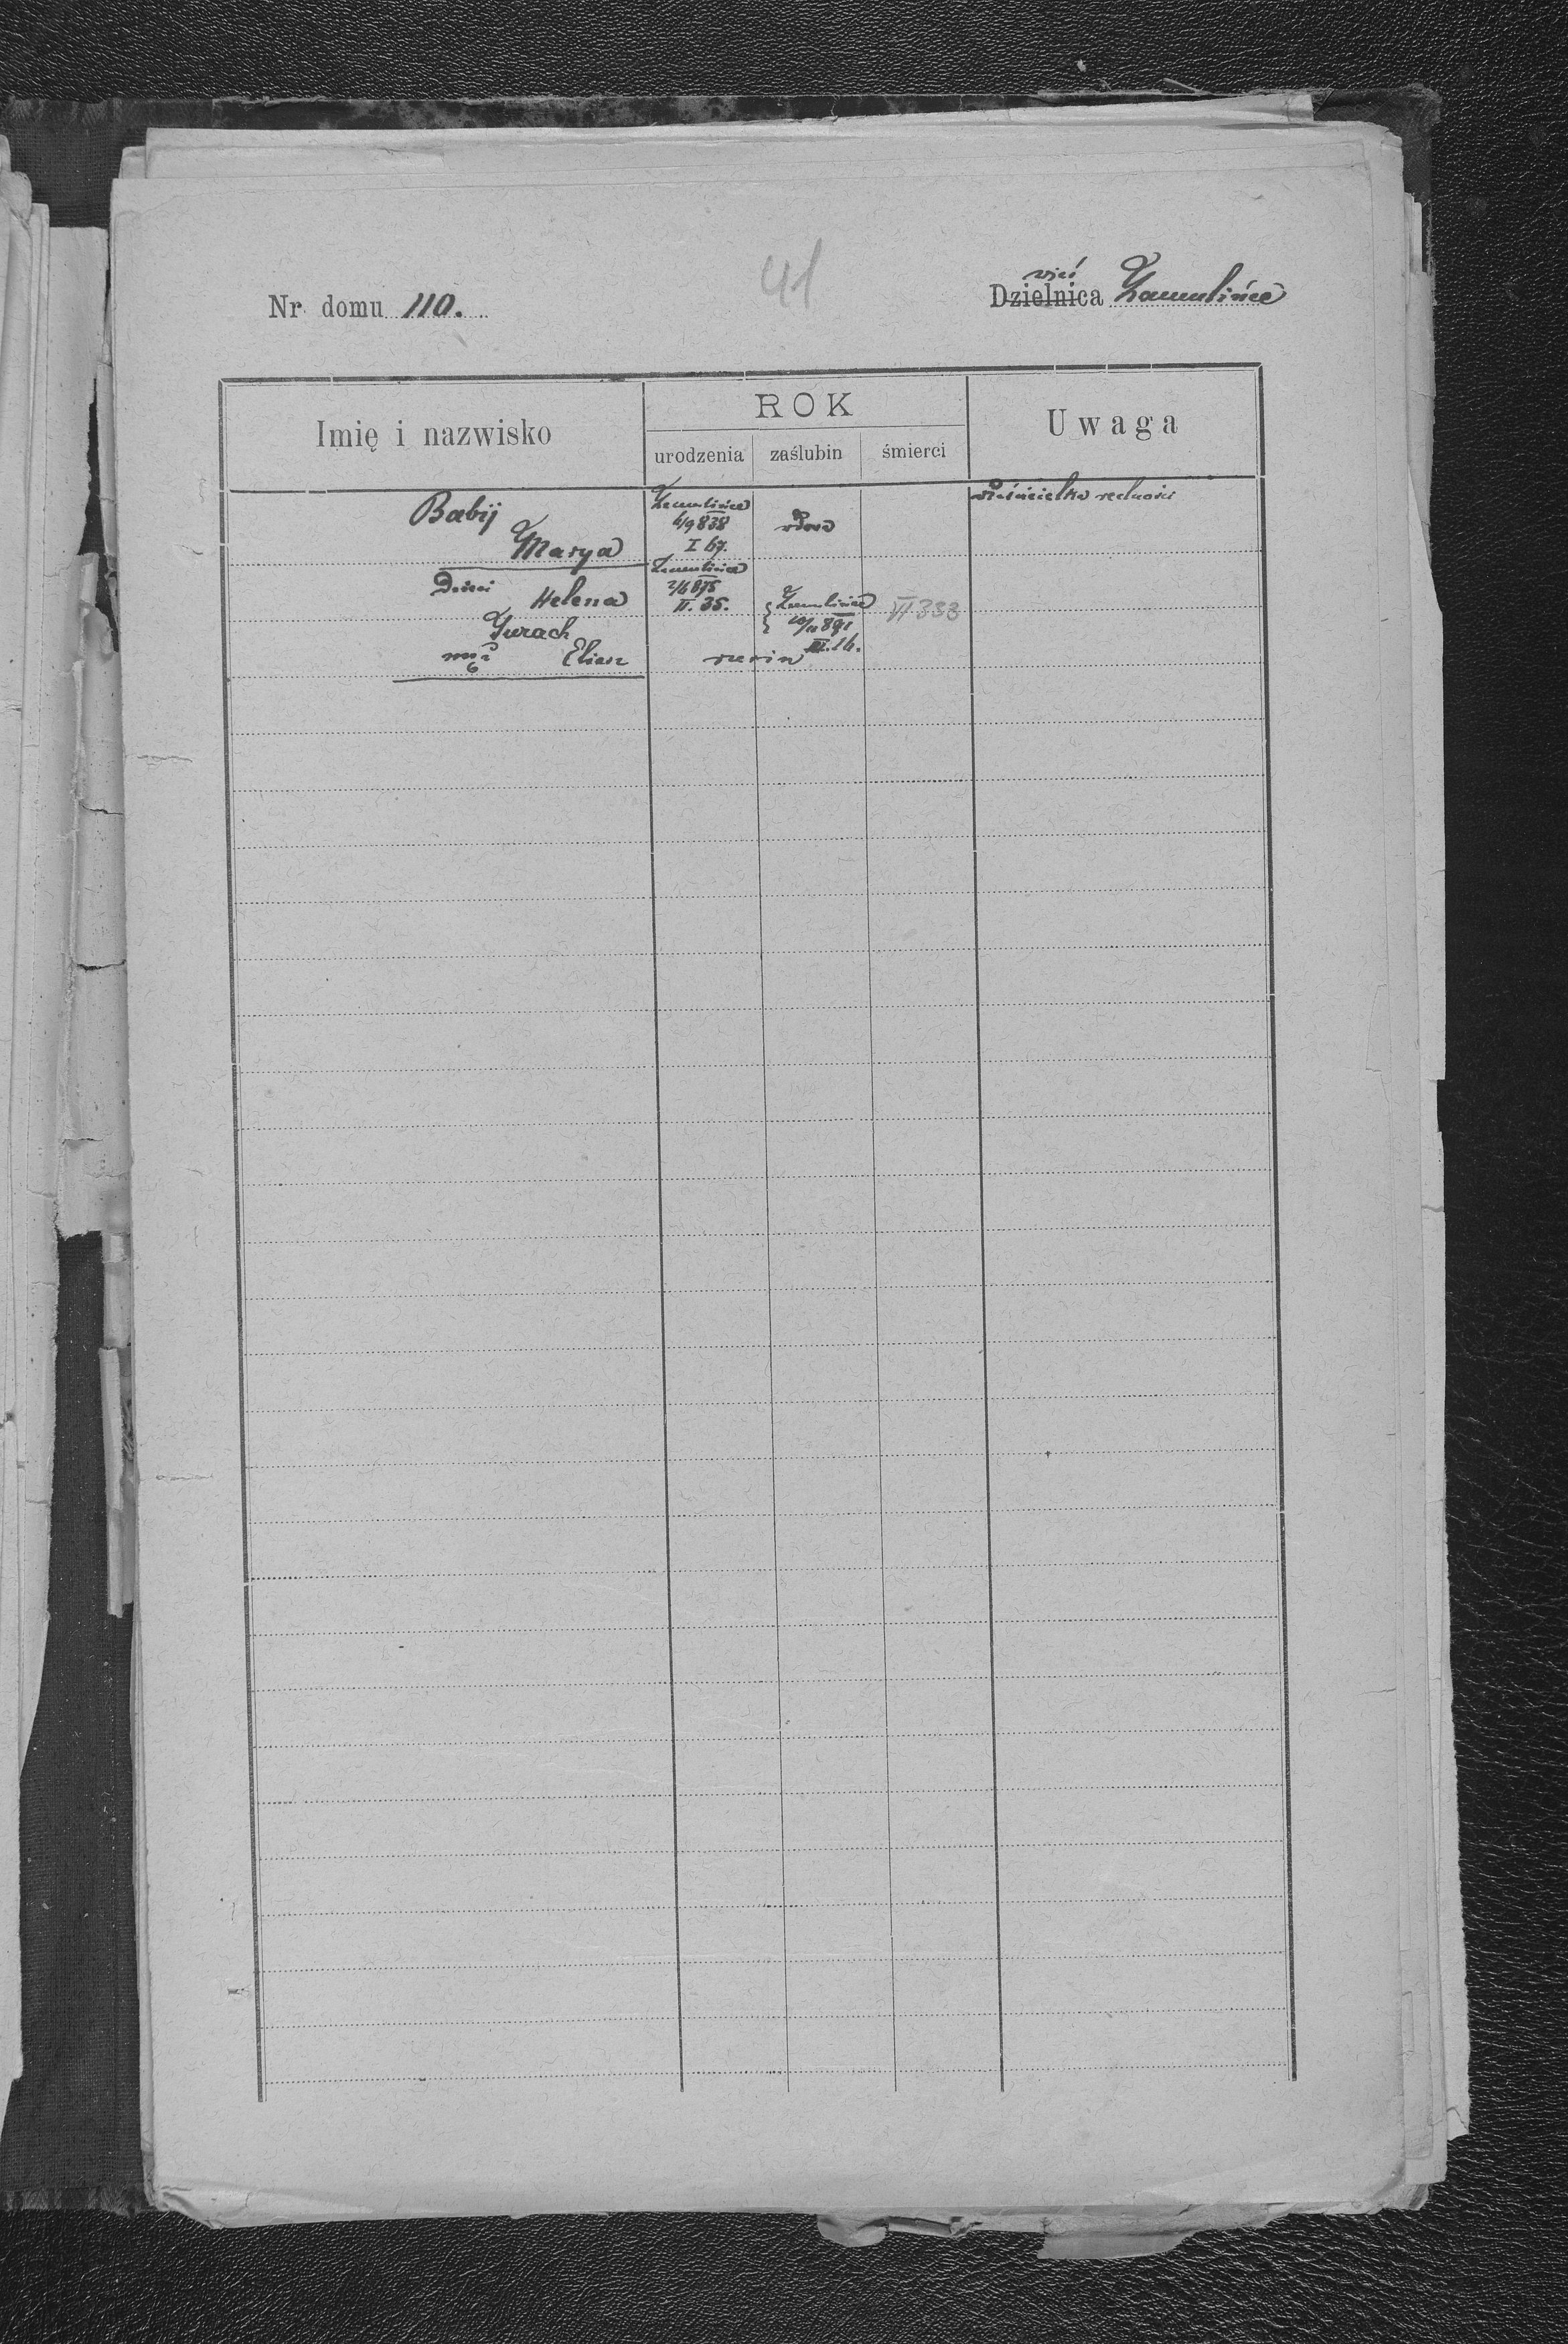 41
Nr. domu 110.
wieś
Dzielnica Zamulińce
Imię i nazwisko
ROK
urodzenia
zaślubin
śmierci
Uwaga
Babij
Marya
Zamulińce
4/9 838
I 67.
wdowa
właścicielka realności
Dzieci
Helena
Zamulińce
2/6 875
II. 35.
Zamulińce
891
III. 16.
VI 333
Jurach
mąż Eliasz
6